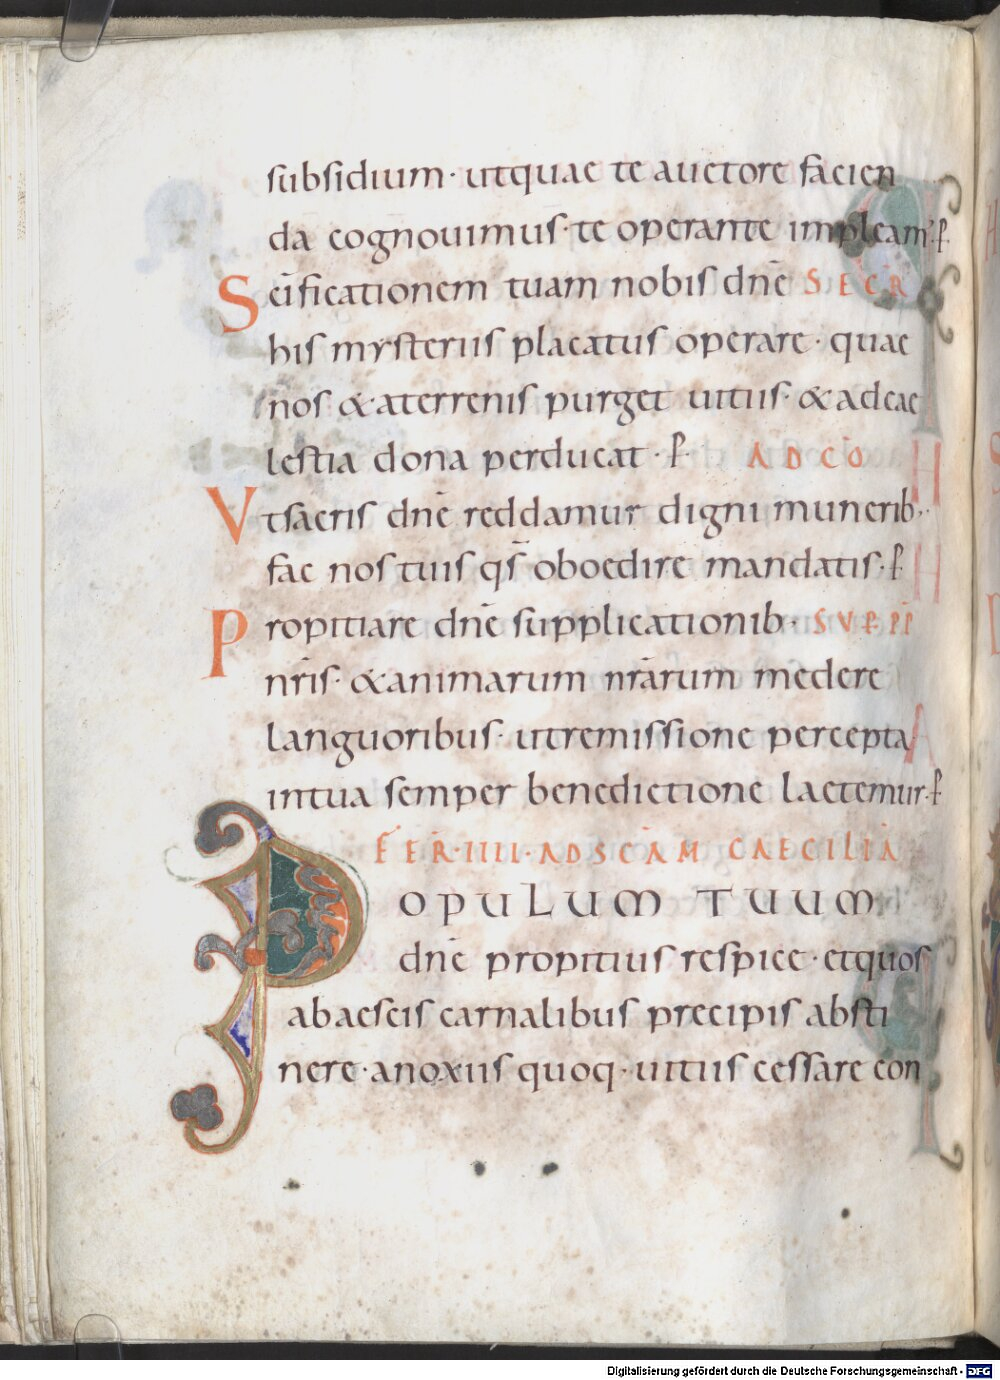 subsidium· utquae te auctore facien
da cognouimus· te operante impleam̄· ꝑ
Sc̄ificationem tuam nobis dn̄e SECR̄
his mysteriis placatus operare· quae
nos & aterrenis purget uitiis· & adcae
lestia dona perducat· ꝑ ADCŌ
Utsacris dn̄e reddamur digni munerib·
fac nos tuis qs̄ oboedire mandatis· ꝑ
Propitiare dn̄e supplicationib· SUP PP̄
nr̄is· & animarum nr̄arum medere
languoribus· utremissione percepta
intua semper benedictione laetemur· ꝑ
FER̄·IIII·ADSC̄AM CAECILIĀ
POPULUM TUUM
dn̄e propitius respice· etquos
abaescis carnalibus precipis absti
nere· anoxiis quoq· uitiis cessare con
Digitalisierung gefördert durch die Deutsche Forschungsgemeinschaft - DFG